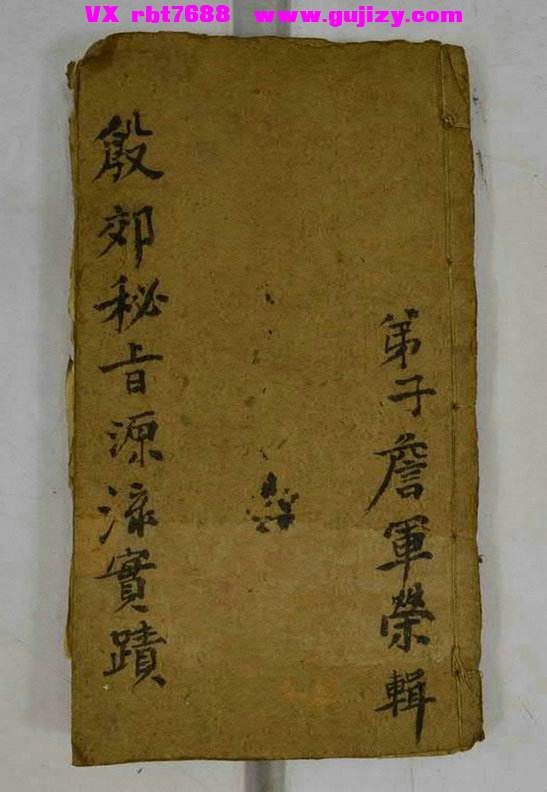 VX rbt7688 www.gujizy.com
弟子詹軍榮輯
殷郊秘旨源流實蹟